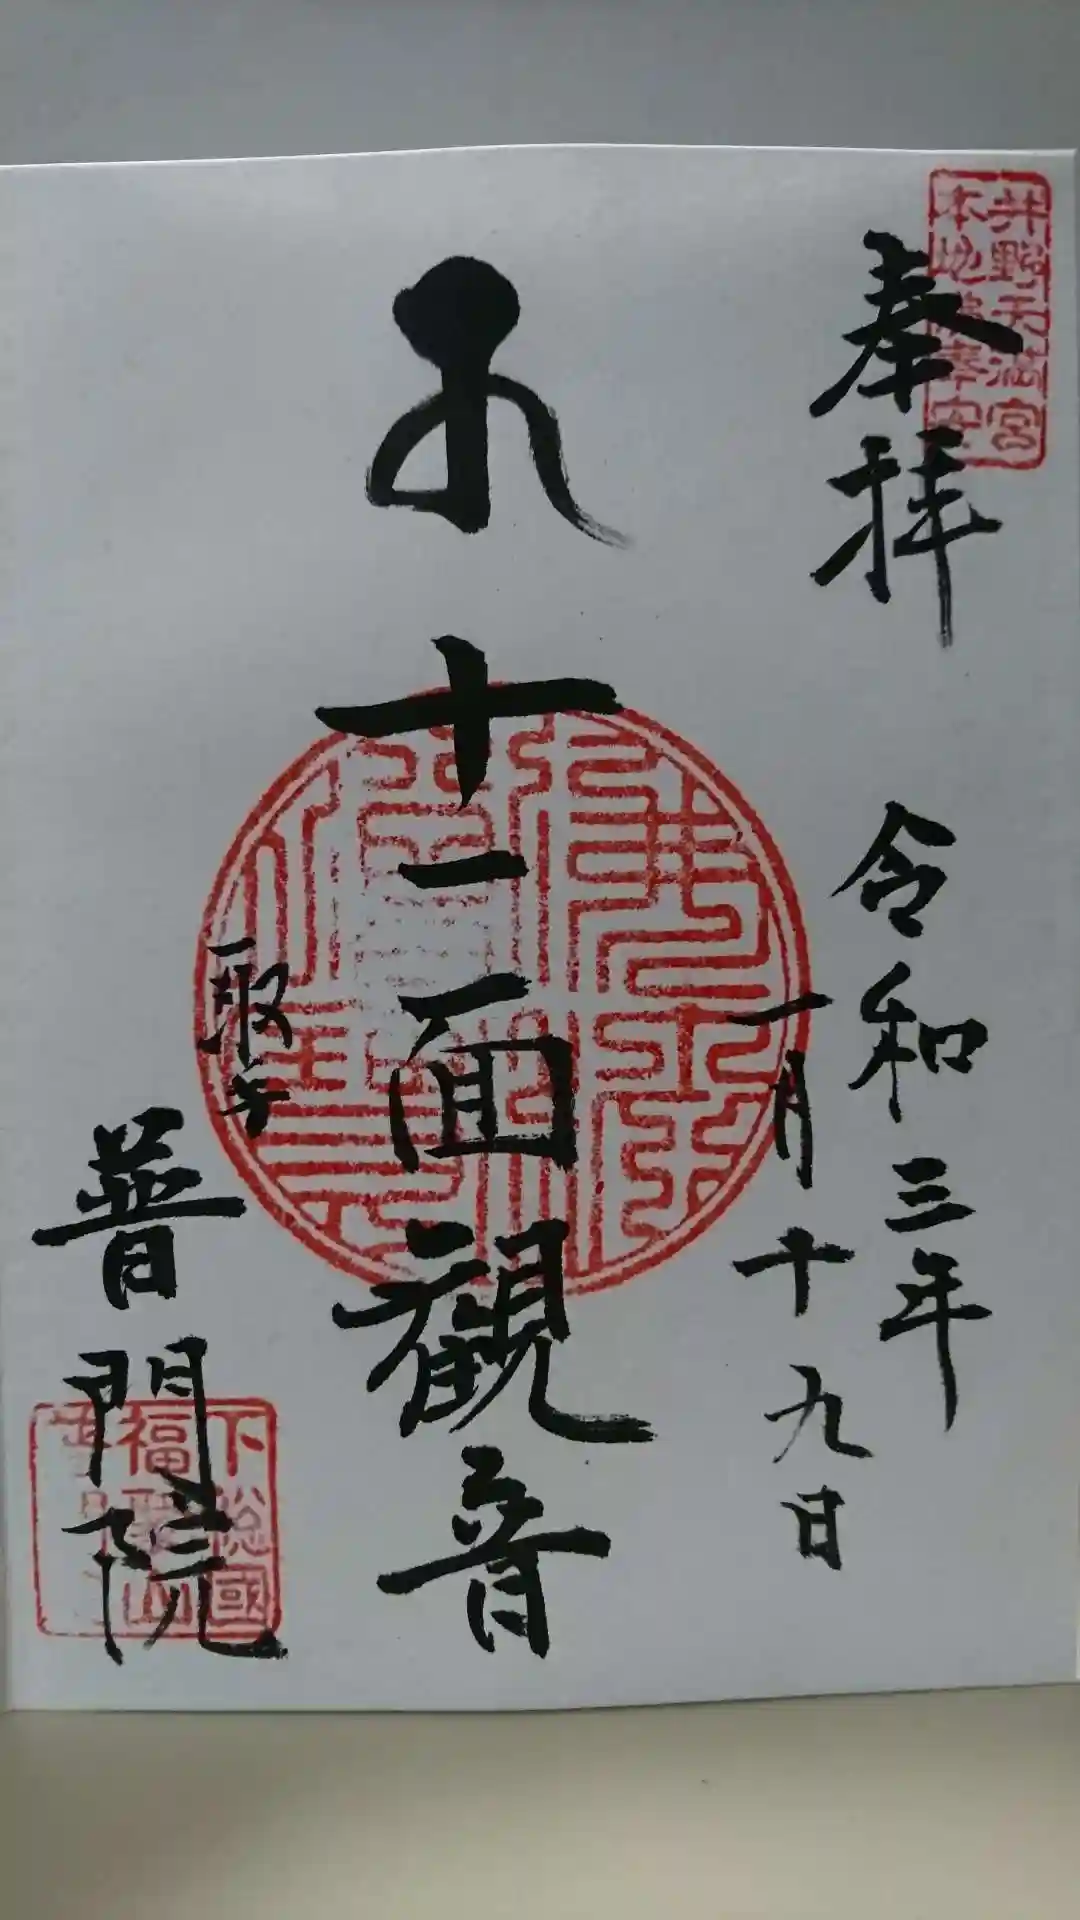 井野天満宮
本地佛奉安
奉拝
令和三年
一月十九日
十一面観音
取手
普門院
下総國
福聚山